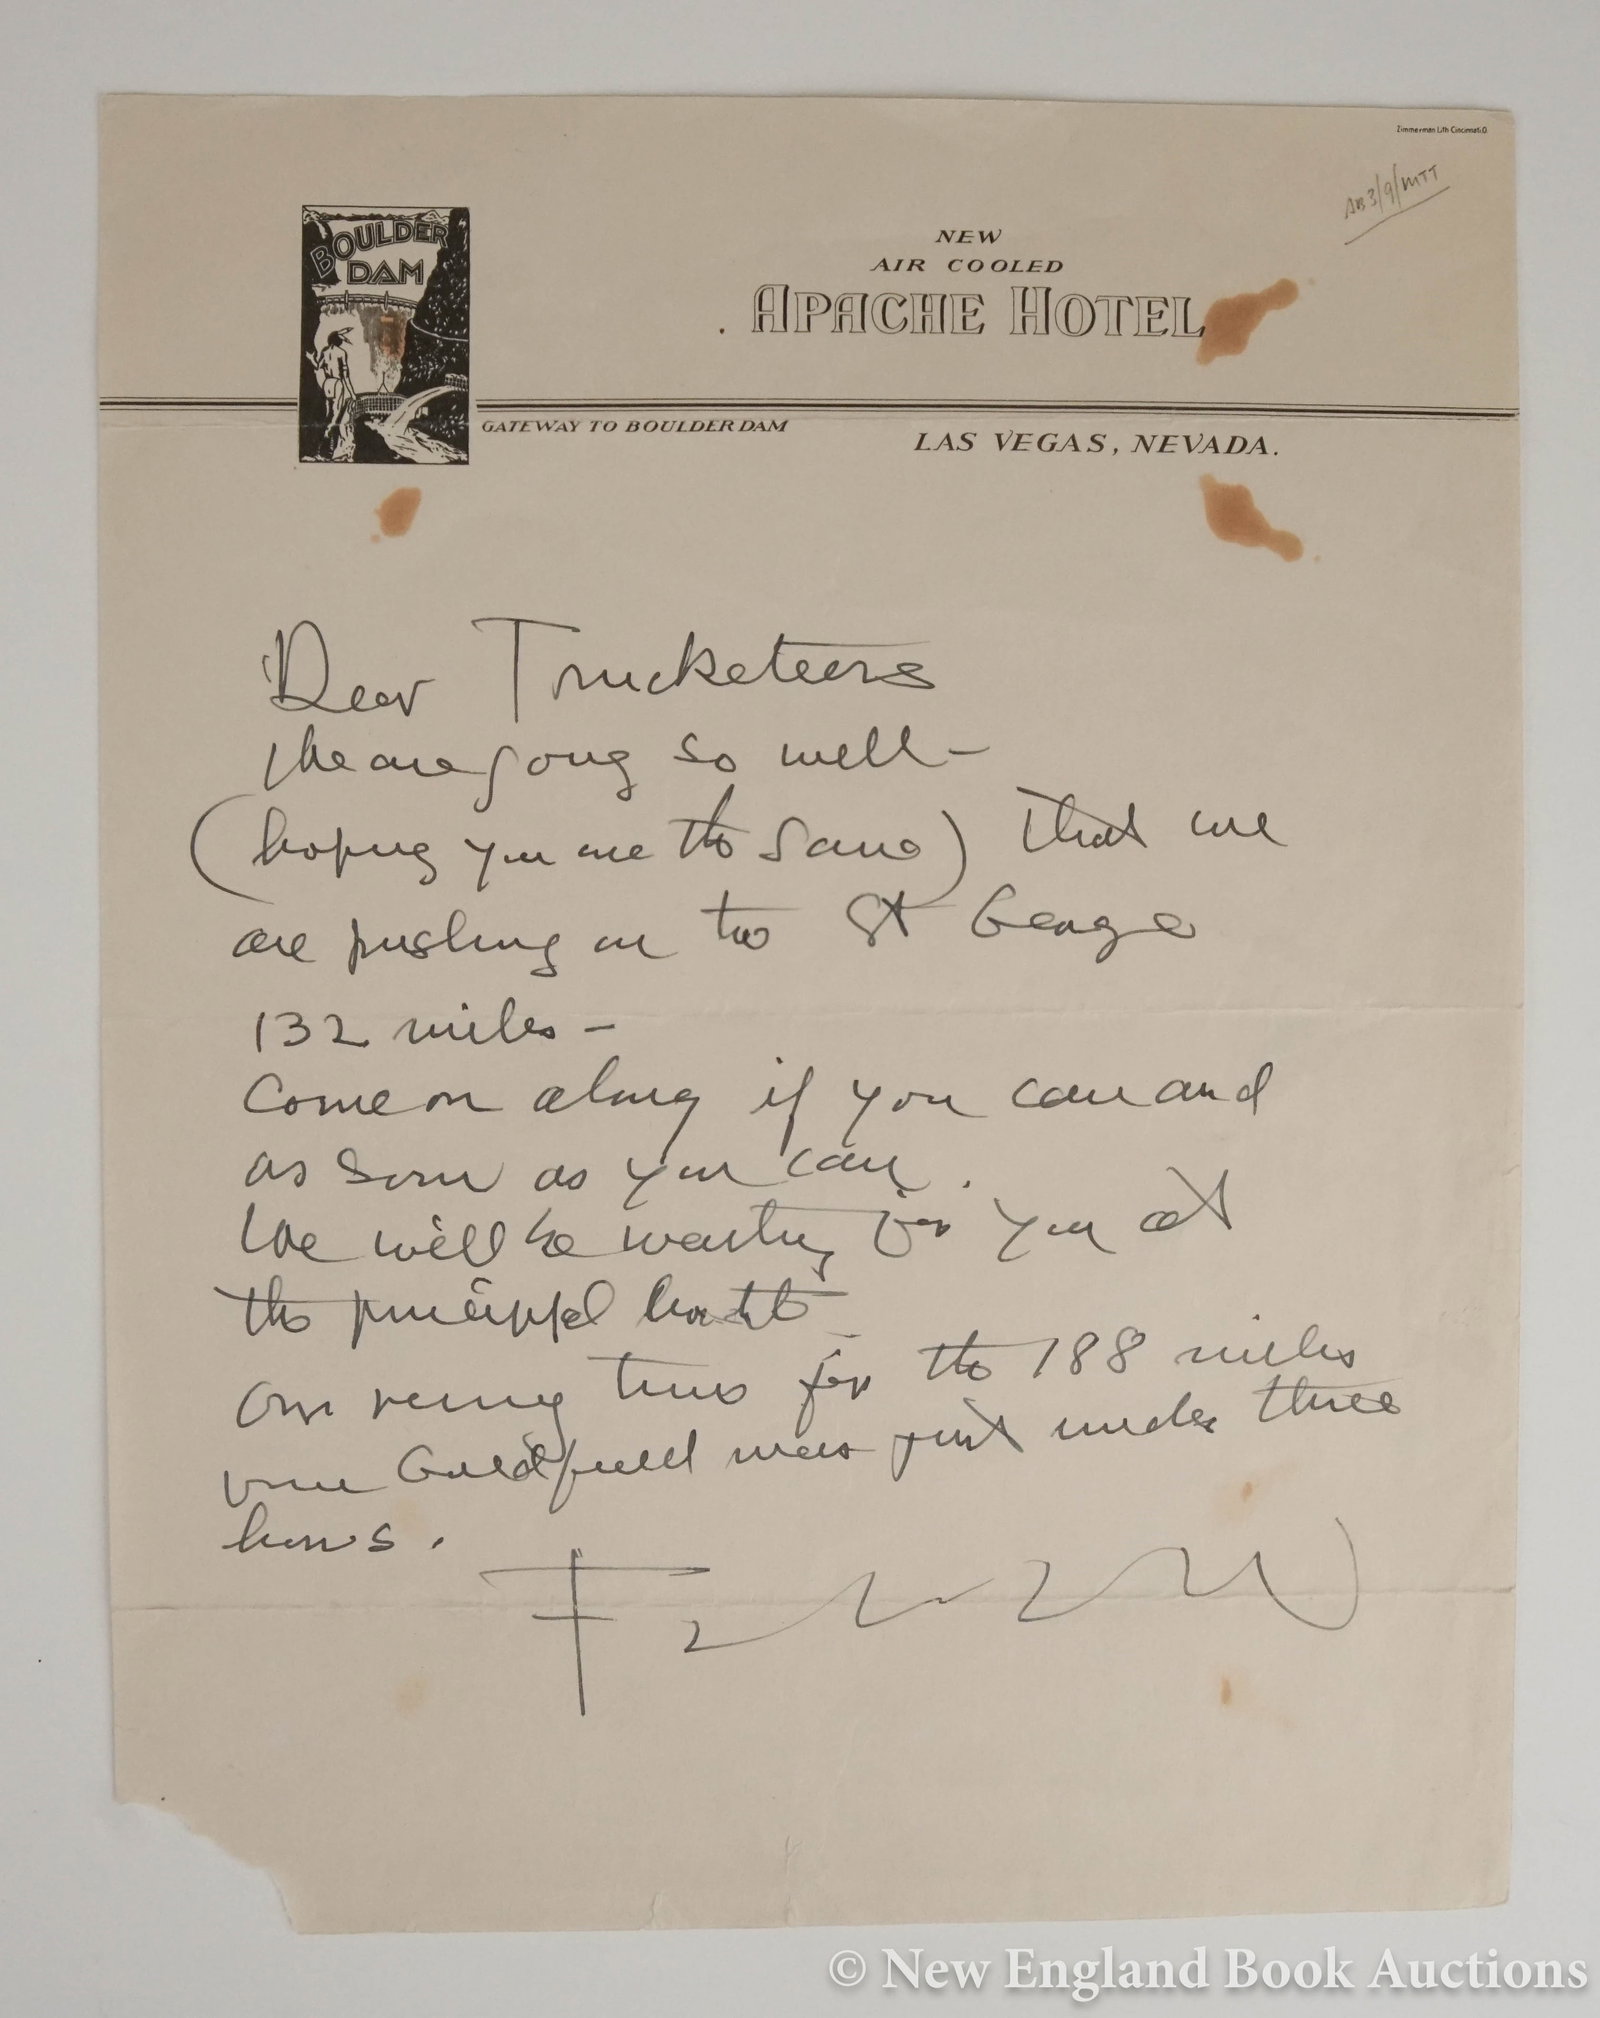 Zimmerman Lith Cincinnati O.
AB3/9/MTT
BOULDER
DAM
NEW
AIR COOLED
APACHE HOTEL
GATEWAY TO BOULDER DAM
LAS VEGAS, NEVADA.
Dear Trucketeers
We are going so well –
(hoping you are the same) that we
are pushing on to St George
132 miles –
Come on along if you can and
as soon as you can.
We will be waiting for you at
the principal hotel –
Our runing time for the 188 miles
from Goldfield was just under three
hours.
© New England Book Auctions